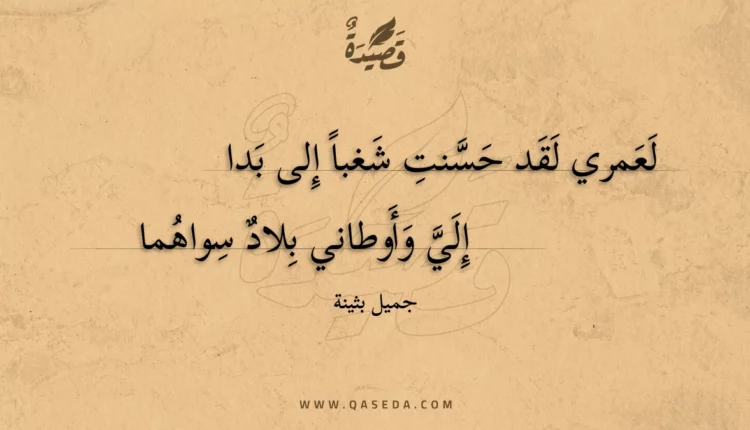 قَصِيدَةٌ
لَعَمري لَقَد حَسَّنتِ شَغباً إِلى بَدا
إِلَيَّ وَأَوطاني بِلادٌ سِواهُما
جميل بثينة
WWW.QASEDA.COM